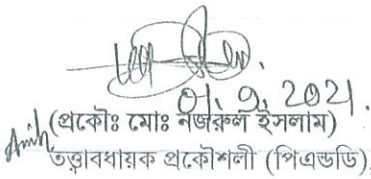 01.9.2021.
(প্রকৌঃ মোঃ নজরুল ইসলাম)
তত্ত্বাবধায়ক প্রকৌশলী (পিএন্ডডি)